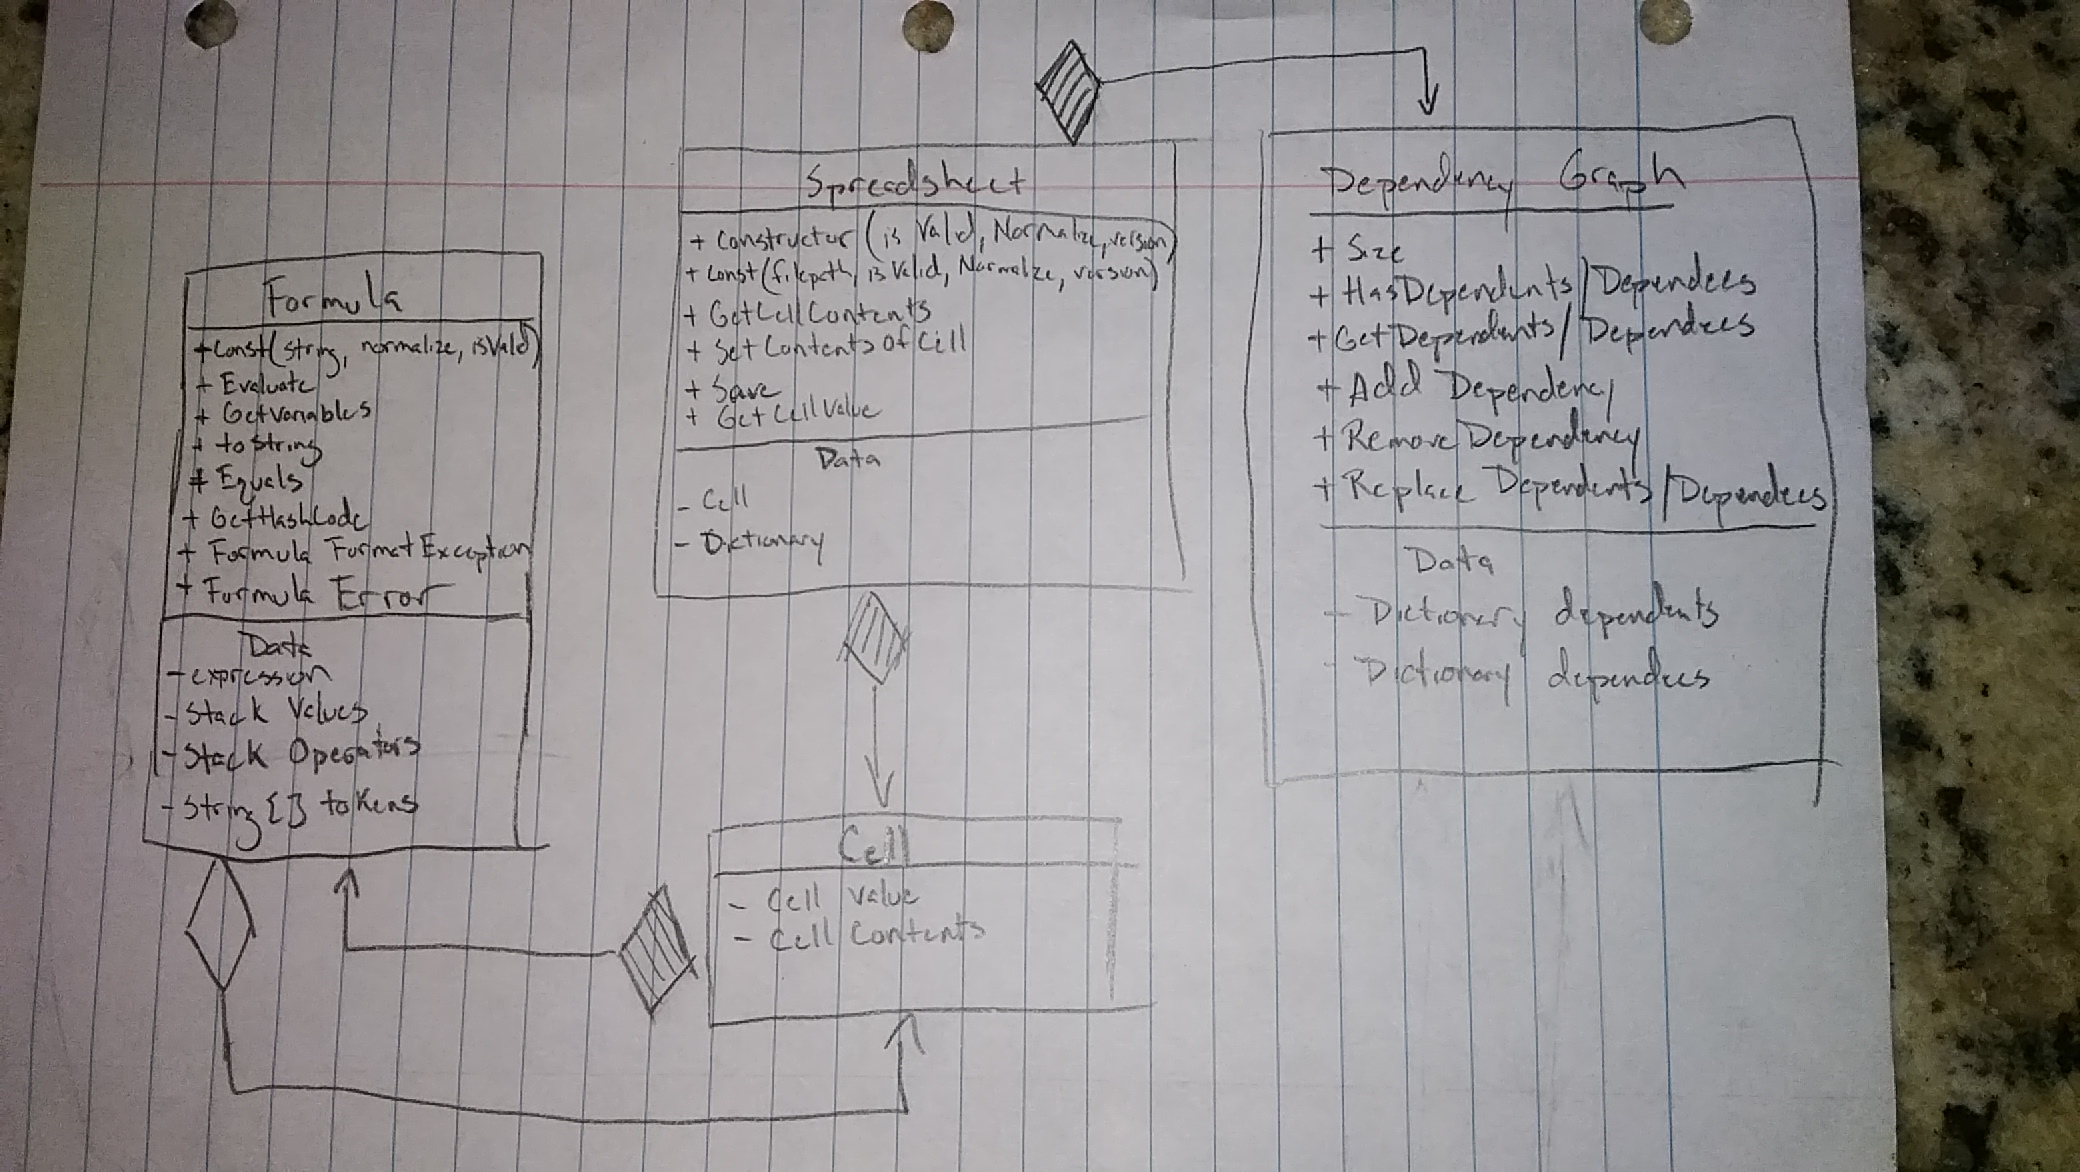 Formula
+ const(string, normalize, isValid)
+ Evaluate
+ GetVariables
+ toString
+ Equals
+ GetHashCode
+ Formula FormatException
+ Formula Error
Data
- expression
- Stack Values
- Stack Operators
- String [] tokens
Spreadsheet
+ constructor (is Valid, Normalize, version)
+ const(filepath, isValid, Normalize, version)
+ GetCellContents
+ SetContentsOfCell
+ Save
+ GetCellValue
Data
- Cell
- Dictionary
Cell
- Cell value
- Cell Contents
Dependency Graph
+ Size
+ HasDependents/Dependees
+ GetDependents/Dependees
+ Add Dependency
+ RemoveDependency
+ Replace Dependents/Dependees
Data
- Dictionary dependents
- Dictionary dependees